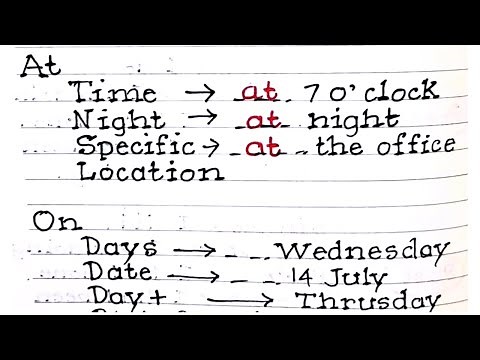 At
Time → at 7 o'clock
Night → at night
Specific → at the office
Location
On
Days → _ _ Wednesday
Date → _ _ 14 July
Day + → Thrusday